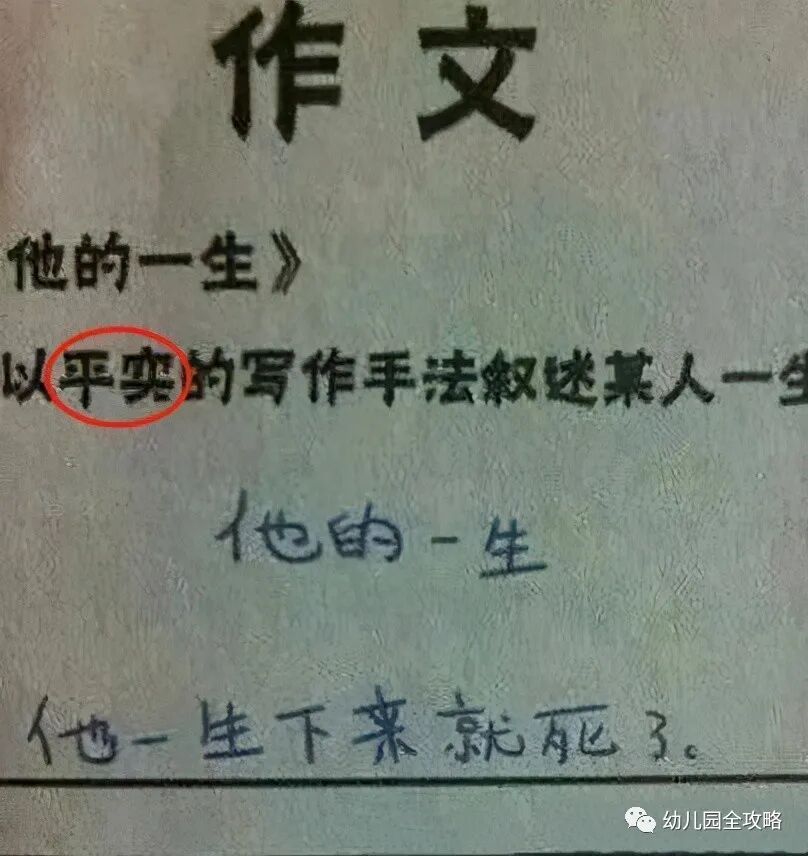 作文
他的一生》
以平实的写作手法叙述某人一生
他的一生
他一生下来就死了。
幼儿园全攻略